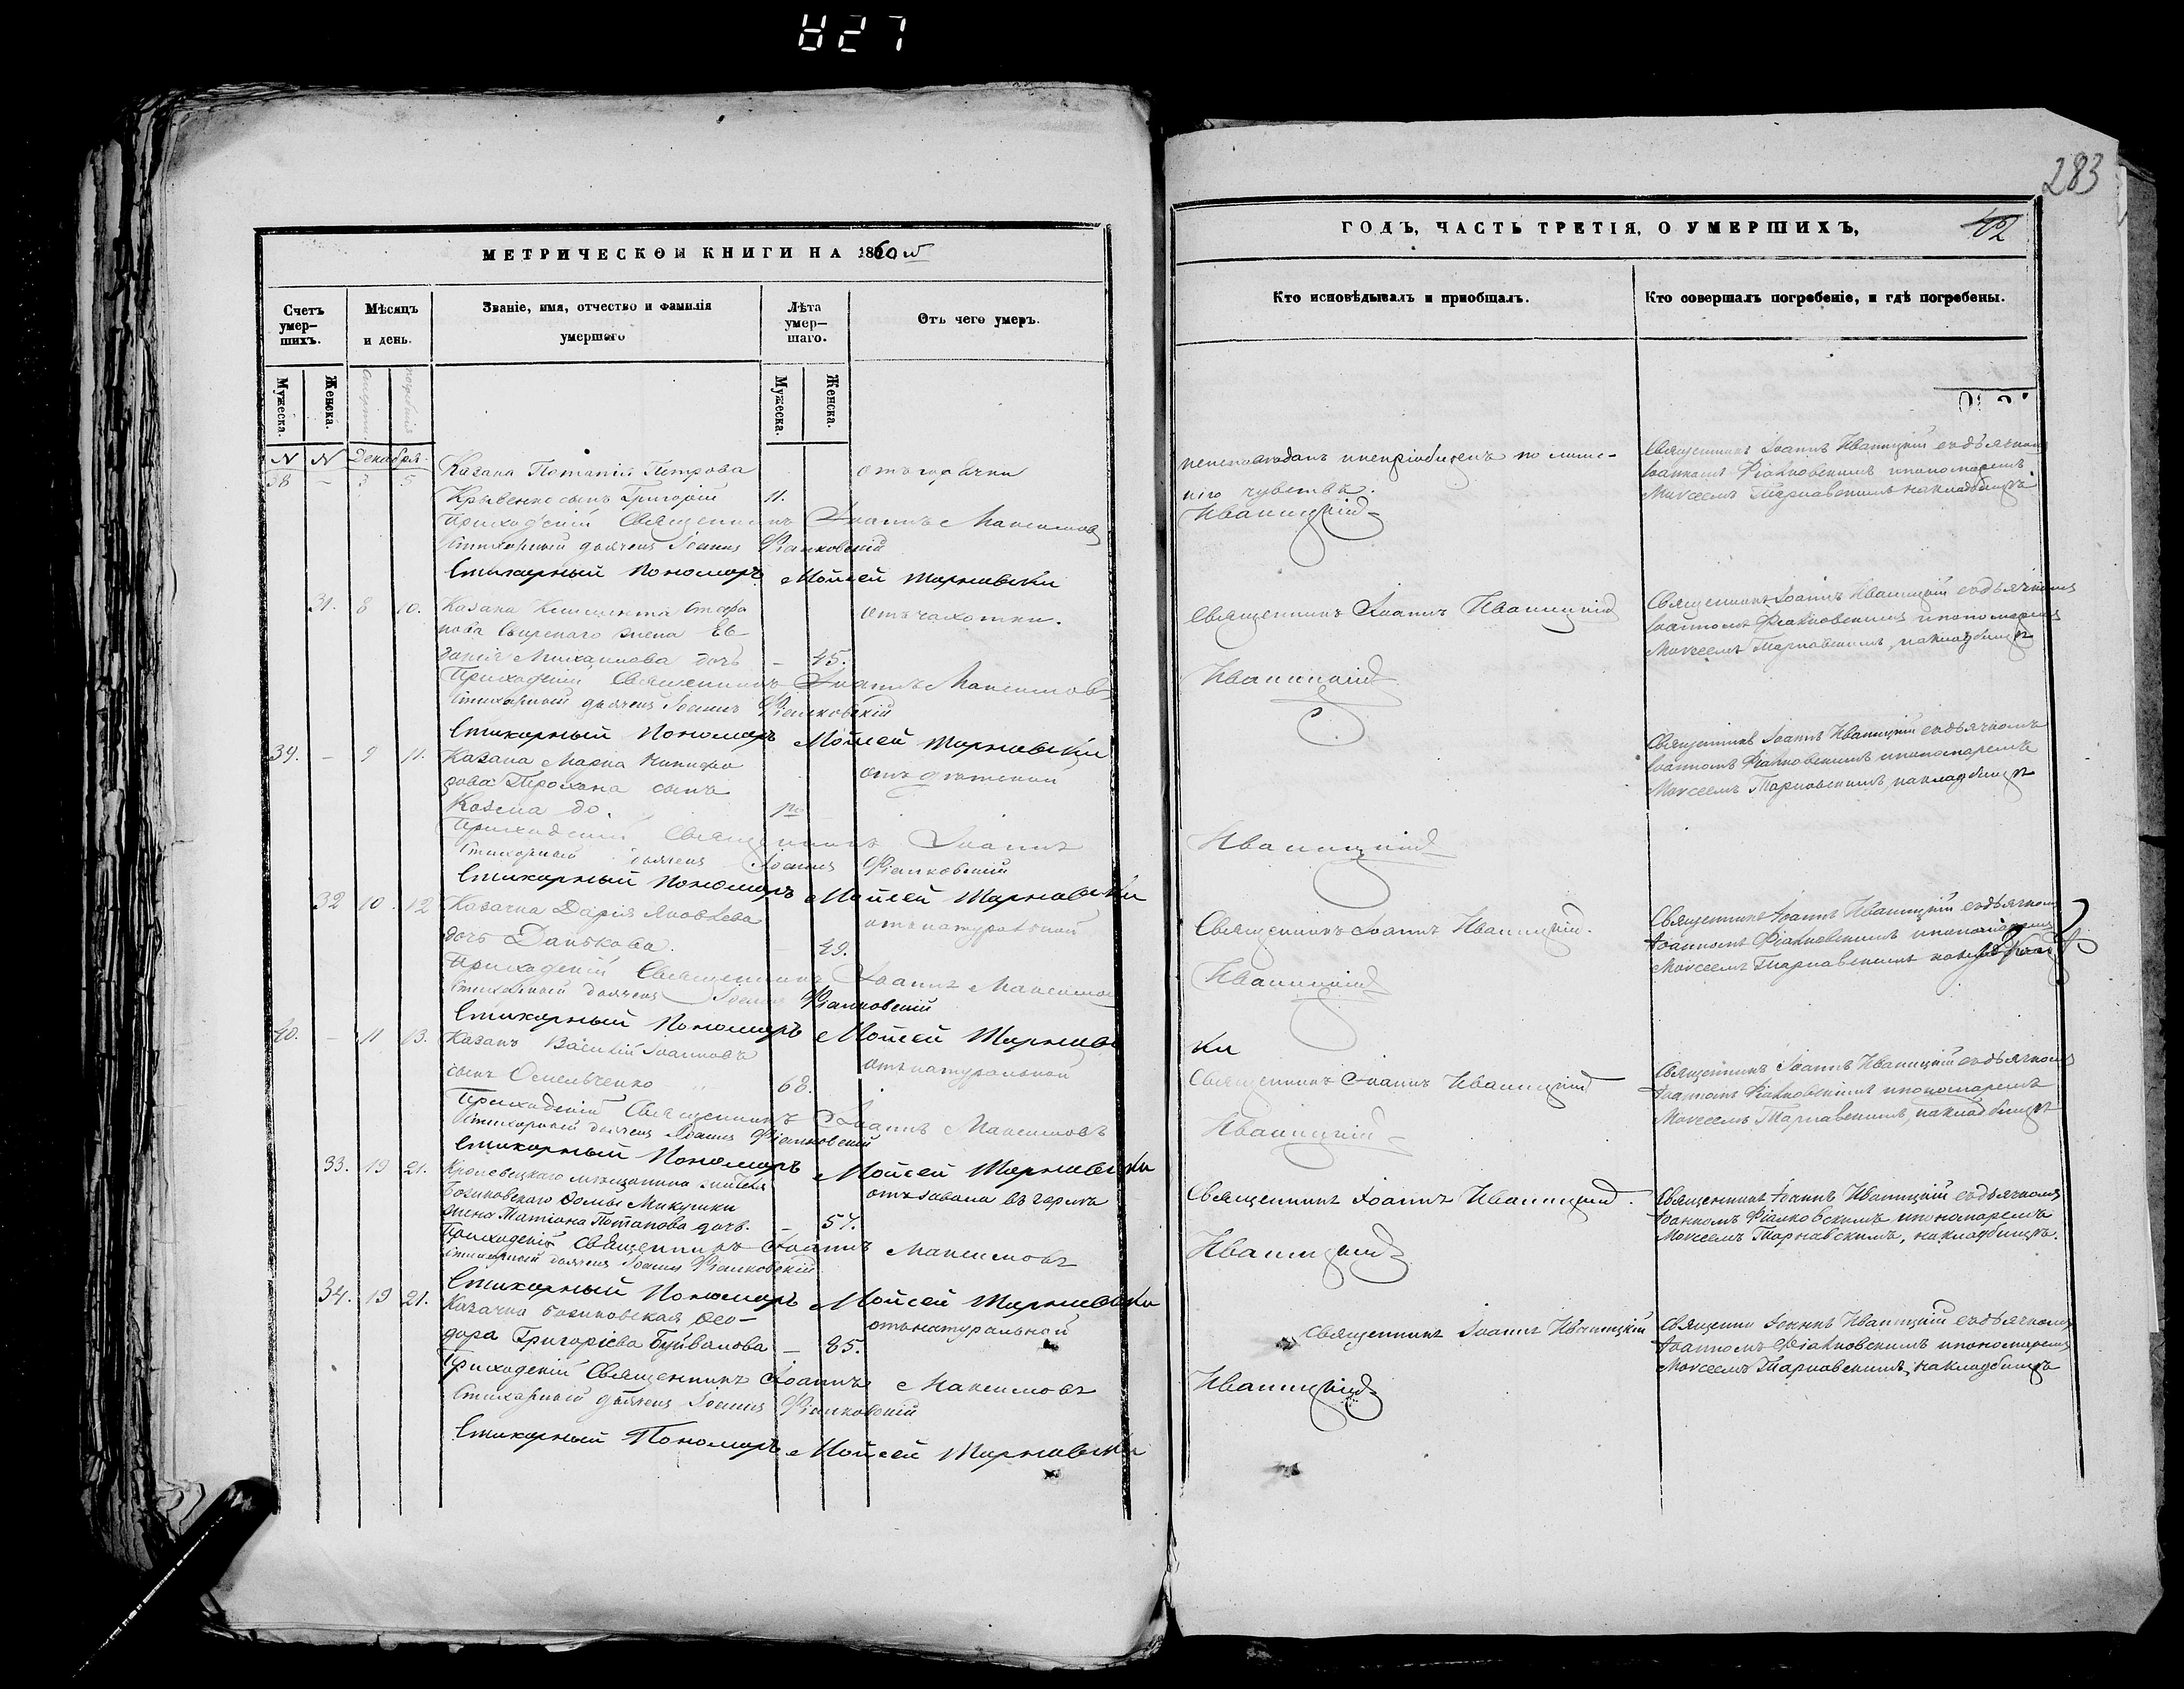 283
МЕТРИЧЕСКОЙ КНИГИ НА 1860й
ГОДЪ, ЧАСТЬ ТРЕТІЯ, О УМЕРШИХЪ,
402
Счетъ умер-шихъ.
Мѣсяцъ и день.
Званіе, имя, отчество и фамилія умершаго
Лѣта умер-шаго.
Отъ чего умеръ.
Кто исповѣдывалъ и пріобщалъ.
Кто совершалъ погребеніе, и гдѣ погребены.
Мужеска.
Женска.
смерти
погребенія
Мужеска.
Женска.
N N Декабря
38 - 3 5 Козака Потапія Петрова
отъ горячки
Кривенко сынъ Григорій 11.
Приходскій Священникъ Іоаннъ Максимовъ
Стихарный дьячекъ Іоаннъ Фіалковскій
Стихарный Пономарь Мойсей Тарнавски
неисповѣданъ инепріобщенъ по лише-
нію чувствъ.
Иваницкій
Священникъ Іоаннъ Иваницкій съдьячкомъ
Іоанномъ Фіалковскимъ ипономаремъ
Моисеемъ Тарнавскимъ накладбищѣ
31. 8 10. Козака Климента Стефа
нова жена Ев
докія Михаилова дочь - 45.
отъ чахотки.
Приходскій Священникъ Іоаннъ Максимовъ
Стихарный дьячекъ Іоаннъ Фіалковскій
Стихарный Пономарь Мойсей Тарнавски
Священникъ Іоаннъ Иваницкій
Иваницкій
Священникъ Іоаннъ Иваницкій съдьячкомъ
Іоанномъ Фіалковскимъ ипономаремъ
Моисеемъ Тарнавскимъ, накладбищѣ
39. - 9 11. Козака Марка Никифо
рова сынъ
Козма
отъ дѣтской
Приходскій Священникъ Іоаннъ
Стихарный дьячекъ Іоаннъ Фіалковскій
Стихарный Пономарь Мойсей Тарнавски
Иваницкій
Священникъ Іоаннъ Иваницкій съдьячкомъ
Іоанномъ Фіалковскимъ ипономаремъ
Моисеемъ Тарнавскимъ, накладбищѣ
32 10. 12 Козачка Дарія Яковлева
дочь Данькова. - 49.
отънатуральной
Приходскій Священникъ Іоаннъ Максимовъ
Стихарный дьячекъ Іоаннъ Фіалковскій
Стихарный Пономарь Мойсей Тарнавс
ки
Священникъ Іоаннъ Иваницкій.
Иваницкій
Священникъ Іоаннъ Иваницкій съдьячкомъ
Іоанномъ Фіалковскимъ ипономаремъ
Моисеемъ Тарнавскимъ
40. - 11 13. Козакъ Василій Іоанновъ
сынъ Омельченко 68.
отънатуральной
Приходскій Священникъ Іоаннъ Максимовъ
Стихарный дьячекъ Іоаннъ Фіалковскій
Стихарный Пономарь Мойсей Тарнавски
Священникъ Іоаннъ Иваницкій
Иваницкій
Священникъ Іоаннъ Иваницкій съдьячкомъ
Іоанномъ Фіалковскимъ ипономаремъ
Моисеемъ Тарнавскимъ, накладбищѣ
33. 19 21. Кролевецкаго мѣщанина жителя
Ѳомы Микушки
жена Татіана Потапова дочь. - 57.
Приходскій Священникъ Іоаннъ Максимовъ
Стихарный дьячекъ Іоаннъ Фіалковскій
Стихарный Пономарь Мойсей Тарнавски
Священникъ Іоаннъ Иваницкій.
Иваницкій
Священникъ Іоаннъ Иваницкій съдьячкомъ
Іоанномъ Фіалковскимъ ипономаремъ
Моисеемъ Тарнавскимъ, накладбищѣ.
34. 19 21. Козачка Ѳео-
дора Григоріева Буйвалова - 85.
отънатуральной
Приходскій Священникъ Іоаннъ Максимовъ
Стихарный дьячекъ Іоаннъ Фіалковскій
Стихарный Пономарь Мойсей Тарнавски
Священникъ Іоаннъ Иваницкій
Иваницкій
Іоаннъ Иваницкій съдьячкомъ
Іоанномъ Фіалковскимъ ипономаремъ
Моисеемъ Тарнавскимъ, накладбищѣ